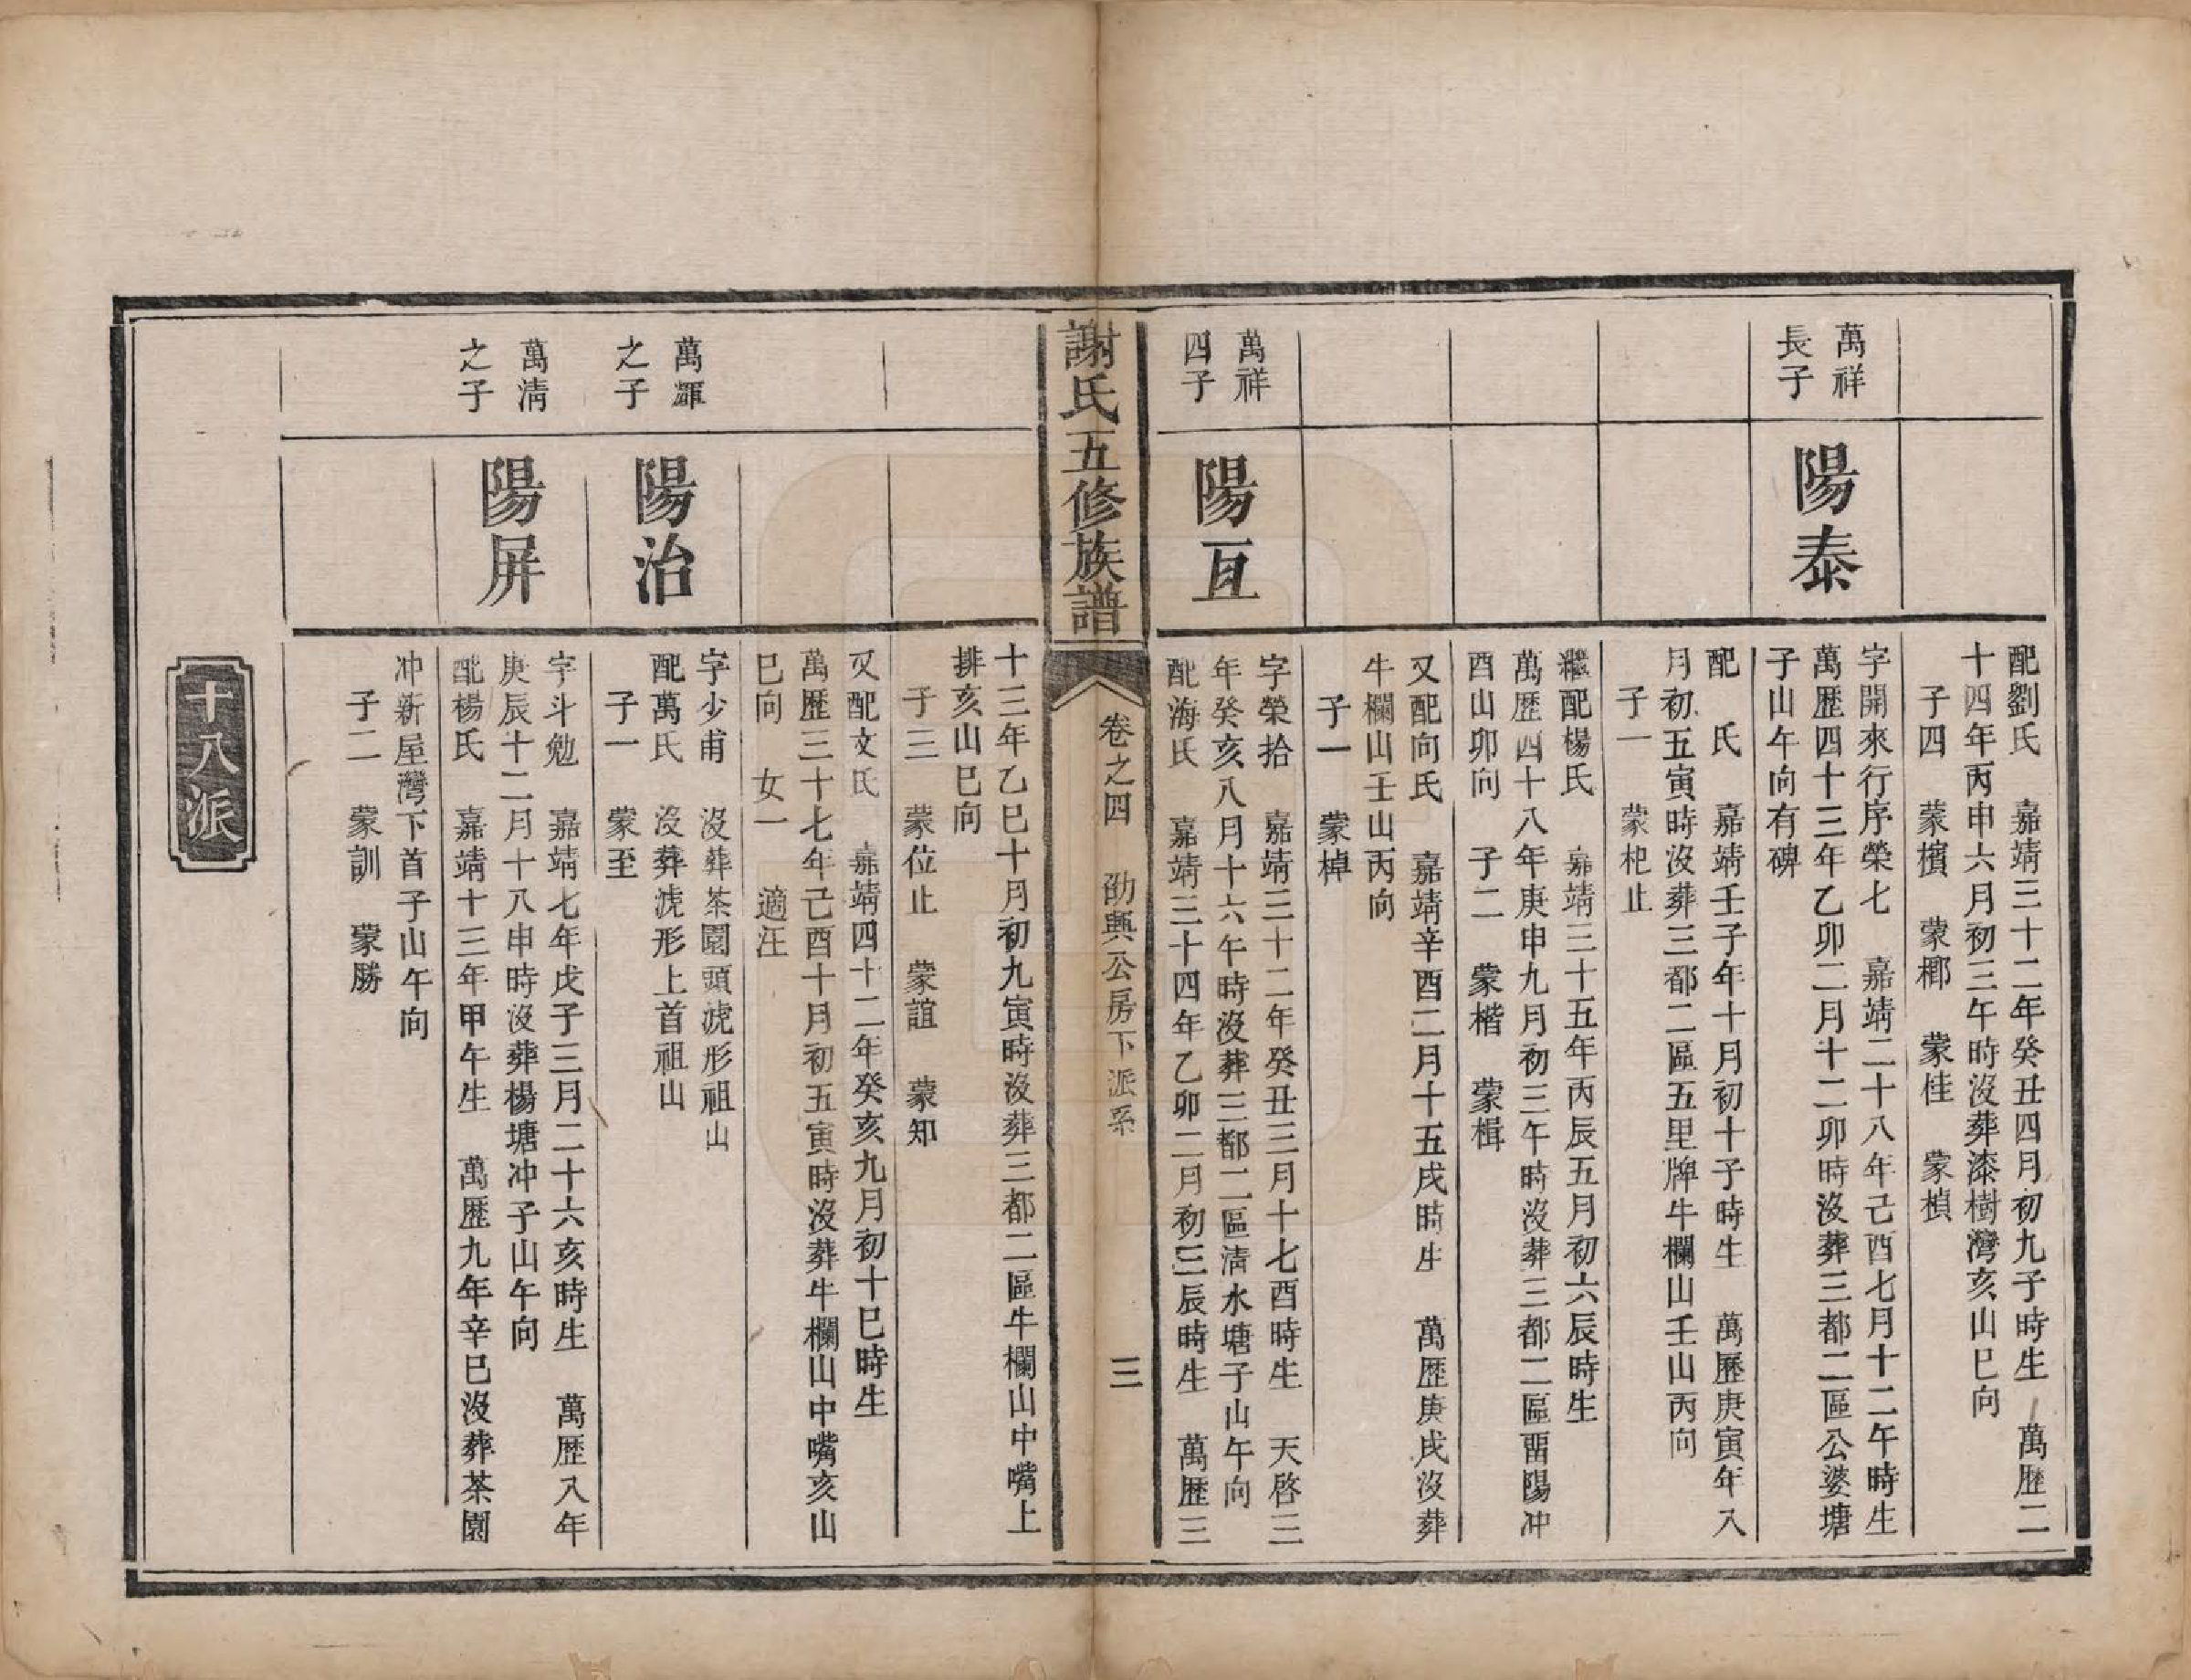 配劉氏　嘉靖三十二年癸丑四月初九子時生　萬歷二
十四年丙申六月初三午時沒葬漆樹灣亥山巳向
子四　蒙檳　蒙榔　蒙佳　蒙楨
萬祥
長子
陽泰
字開來行序榮七　嘉靖二十八年己酉七月十二午時生
萬歷四十三年乙卯二月十二卯時沒葬三都二區公婆塘
子山午向有碑
配　氏　嘉靖壬子年十月初十子時生　萬歷庚寅年入
月初五寅時沒葬三都二區五里牌牛欄山壬山丙向
子一　蒙杞止
繼配楊氏　嘉靖三十五年丙辰五月初六辰時生
萬歷四十八年庚申九月初三午時沒葬三都二區畱陽冲
酉山卯向　子二　蒙楷　蒙楫
又配向氏　嘉靖辛酉二月十五戌時生　萬歷庚戌沒葬
牛欄山壬山丙向
子一　蒙棹
萬祥
四子
陽亙
字榮拾　嘉靖三十二年癸丑三月十七酉時生　天啓三
年癸亥八月十六午時沒葬三都二區清水塘子山午向
配海氏　嘉靖三十四年乙卯二月初三辰時生　萬歷三
謝氏五修族譜
卷之四　劭興公房下派系　三
十三年乙巳十月初九寅時沒葬三都二區牛欄山中嘴上
排亥山巳向
子三　蒙位止　蒙誼　蒙知
又配文氏　嘉靖四十二年癸亥九月初十巳時生
萬歷三十七年己酉十月初五寅時沒葬牛欄山中嘴亥山
巳向　女一　適汪
萬燿
之子
陽治
字少甫　沒葬茶園頭淲形祖山
配萬氏　沒葬淲形上首祖山
子一　蒙至
萬淸
之子
陽屏
字斗勉　嘉靖七年戊子三月二十六亥時生　萬歷八年
庚辰十二月十八申時沒葬楊塘冲子山午向
配楊氏　嘉靖十三年甲午生　萬歷九年辛巳沒葬茶園
冲新屋灣下首子山午向
子二　蒙訓　蒙勝
十八派